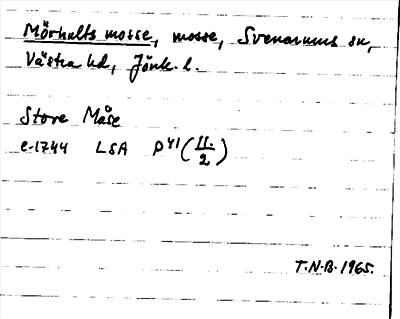 Mörhults mosse, mosse, Svenarums sn,
Västra hd, Jönk. l.
Store Måse
c. 1744 LSA P41 (11/2)
T.N.B. 1965.